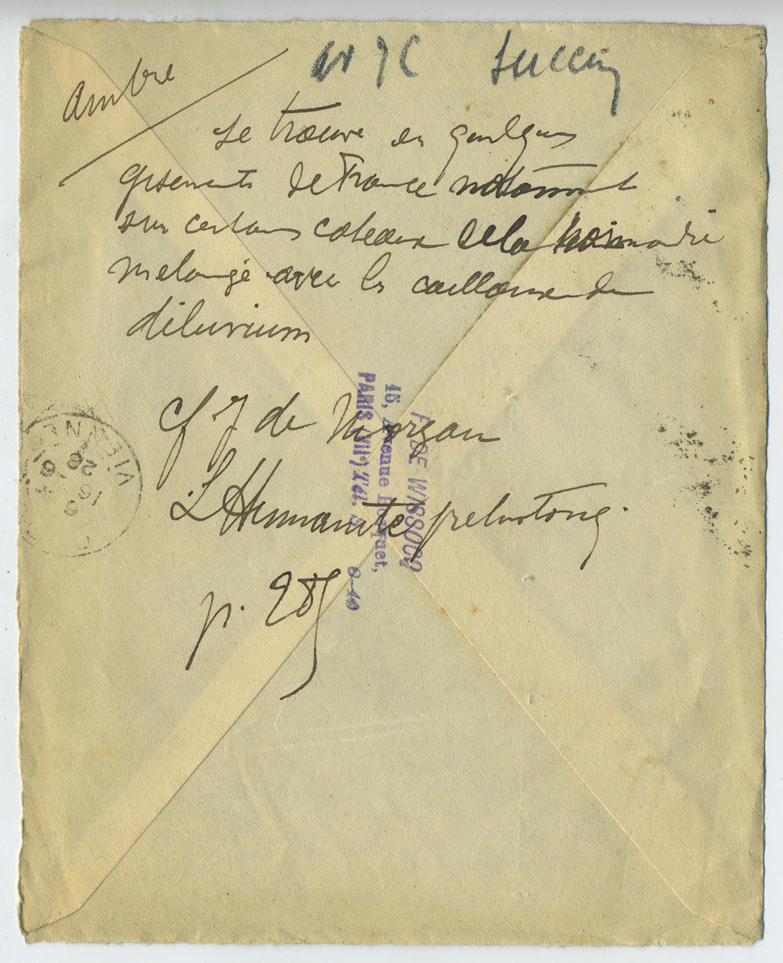 ambre
Succin
se trouve en quelques
gisements de France notamment
sur certains coteaux de la Normandie
melangé avec les cailloux du
diluvium
cf J de Morgan
L'Humanité prehistorique
p. 285
F. DE WISSOCQ
15, Avenue Bosquet,
PARIS (VII) Tél.
VIENNE